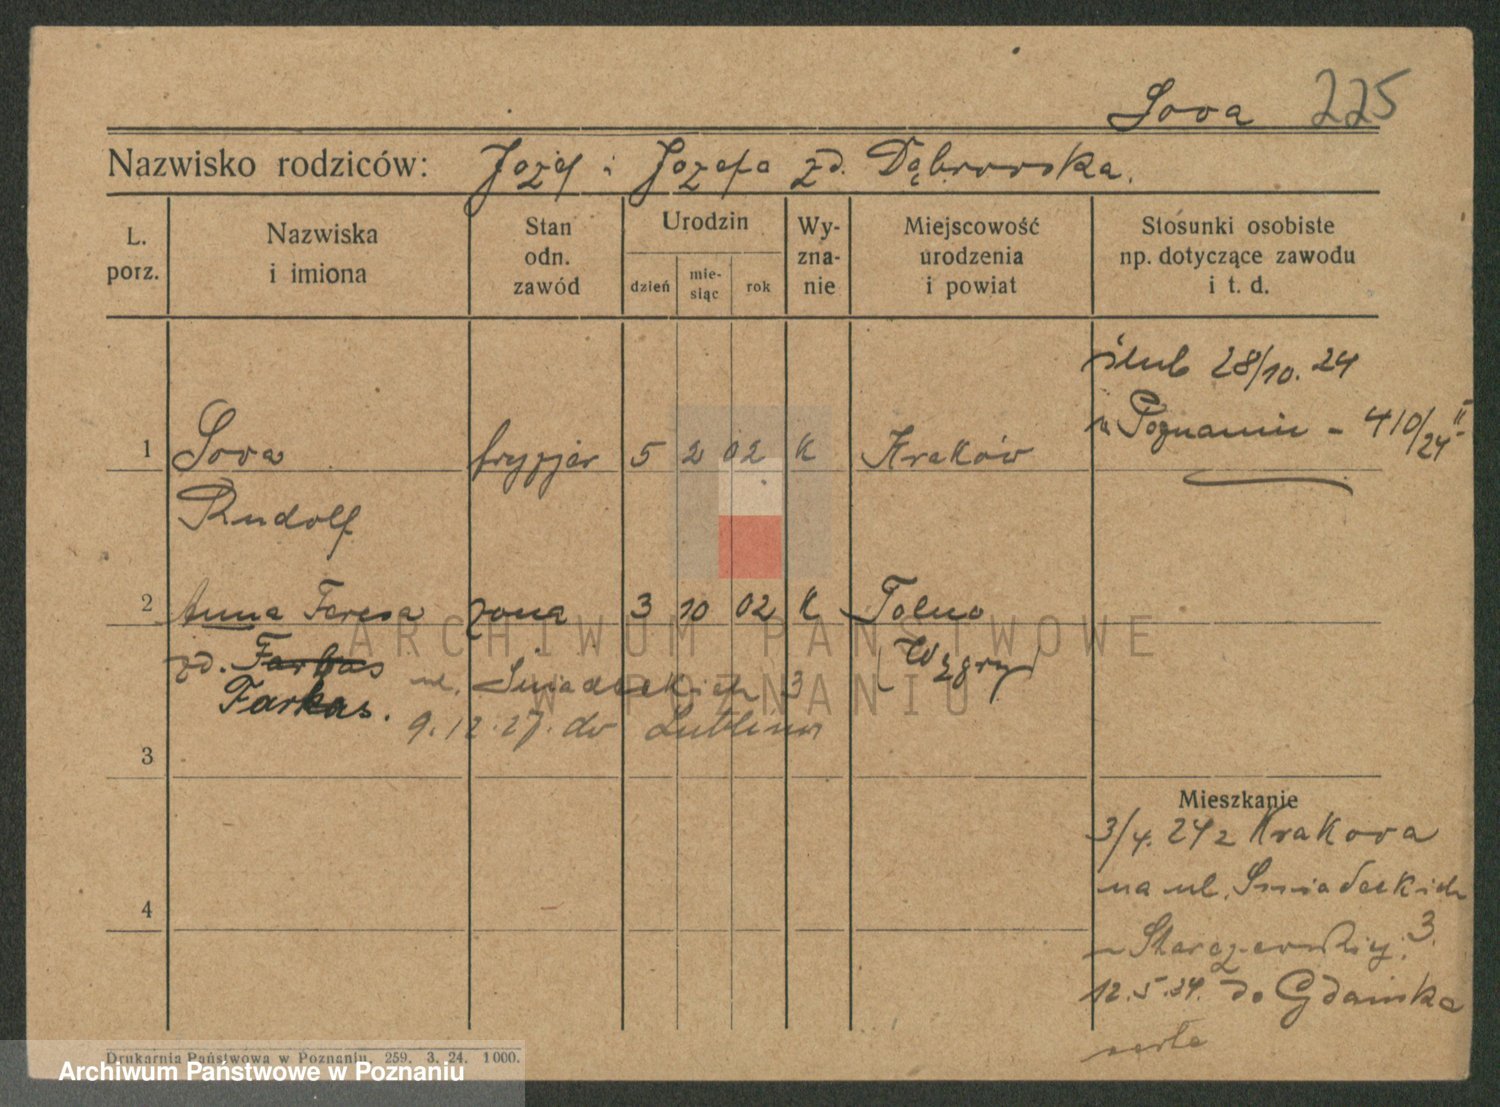 Sova 225
Nazwisko rodziców: Jozef i Jozefa zd. Dąbrowska.
L. porz.
Nazwiska i imiona
Stan odn. zawód
Urodzin
dzień
mie-siąc
rok
Wy-zna-nie
Miejscowość urodzenia i powiat
Stosunki osobiste np. dotyczące zawodu i t. d.
ślub 28/10. 24
w Poznaniu - 410/24 II
1 Sova fryzjer 5 2 02 K Kraków
Rudolf
2 Anna Teresa żona 3 10 02 K Tolno
zd. Farbas (Węgry)
Farkas.
ul. Śniadeckich 3
9.12.27. do Lublina
3
Mieszkanie
3/4. 24 z Krakowa
na ul. Śniadeckich 3.
12.5.34. do Gdańska
4
Drukarnia Państwowa w Poznaniu. 259. 3. 24. 1000.
ARCHIWUM PAŃSTWOWE
W POZNANIU
Archiwum Państwowe w Poznaniu